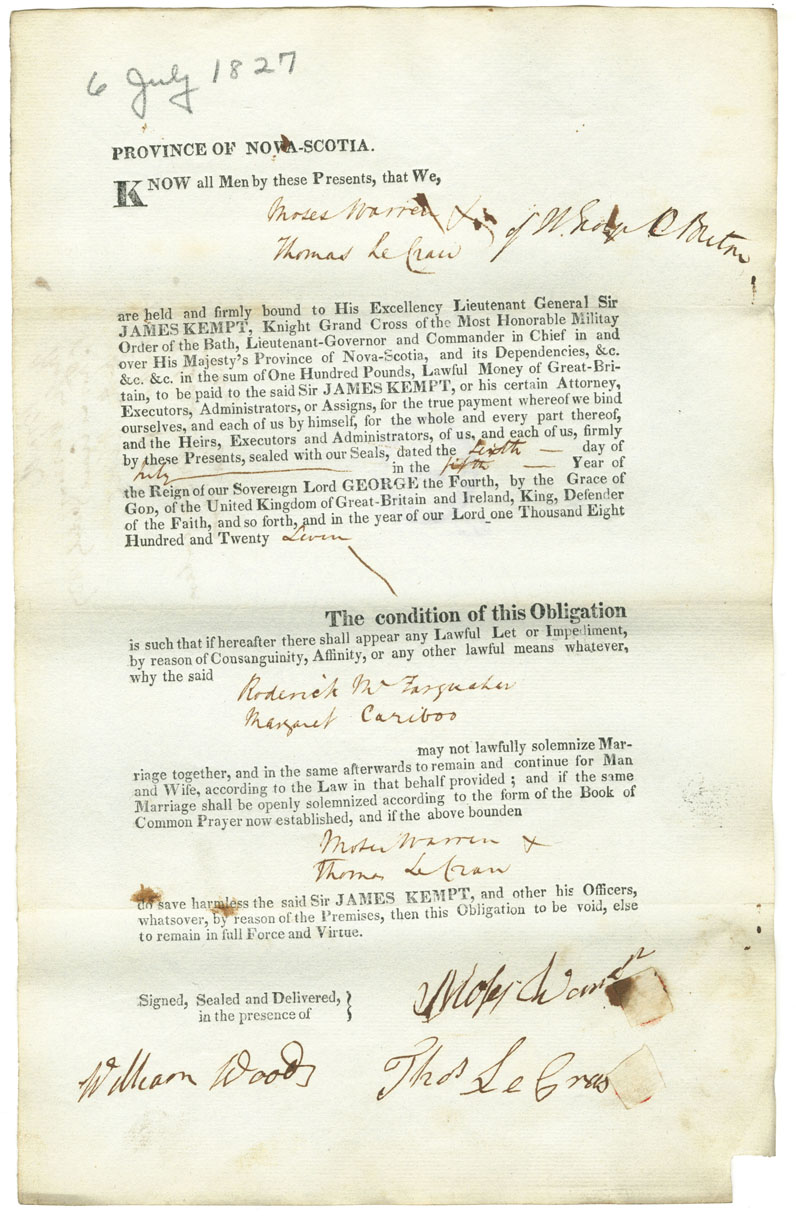 6 July 1827
PROVINCE OF NOVA-SCOTIA.
KNOW all Men by these Presents, that We,
Moses Warren &
Thomas Le Craw
of W. C Breton
are held and firmly bound to His Excellency Lieutenant General Sir
JAMES KEMPT, Knight Grand Cross of the Most Honorable Militay
Order of the Bath, Lieutenant-Governor and Commander in Chief in and
over His Majesty's Province of Nova-Scotia, and its Dependencies, &c.
&c. &c. in the sum of One Hundred Pounds, Lawful Money of Great-Bri-
tain, to be paid to the said Sir JAMES KEMPT, or his certain Attorney,
Executors, Administrators, or Assigns, for the true payment whereof we bind
ourselves, and each of us by himself, for the whole and every part thereof,
and the Heirs, Executors and Administrators, of us, and each of us, firmly
by these Presents, sealed with our Seals, dated the Sixth — day of
July — in the fifth — Year of
the Reign of our Sovereign Lord GEORGE the Fourth, by the Grace of
GOD, of the United Kingdom of Great-Britain and Ireland, King, Defender
of the Faith, and so forth, and in the year of our Lord one Thousand Eight
Hundred and Twenty Seven
The condition of this Obligation
is such that if hereafter there shall appear any Lawful Let or Impediment,
by reason of Consanguinity, Affinity, or any other lawful means whatever,
why the said
Roderick Mc Farquaher
Margaret Cariboo
may not lawfully solemnize Mar-
riage together, and in the same afterwards to remain and continue for Man
and Wife, according to the Law in that behalf provided ; and if the same
Marriage shall be openly solemnized according to the form of the Book of
Common Prayer now established, and if the above bounden
Moses Warren &
Thomas Le Craw
do save harmless the said Sir JAMES KEMPT, and other his Officers,
whatsover, by reason of the Premises, then this Obligation to be void, else
to remain in full Force and Virtue.
Signed, Sealed and Delivered, }
in the presence of
Moses Warren
William Woods
Thos Le Cras